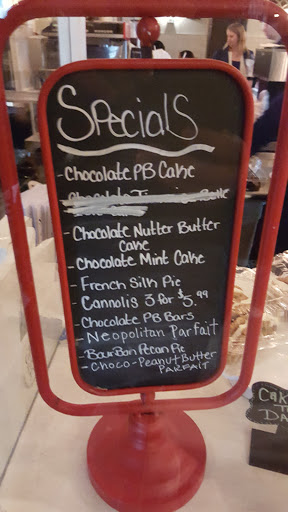 Specials
- Chocolate PB Cake
- Chocolate
- Chocolate Nutter Butter
Cake
- Chocolate Mint Cake
- French Silk Pie
- Cannolis 3 for $5.99
- Chocolate PB Bars
- Neopolitan Parfait
- Bourbon Pecan Pie
- Choco-Peanut Butter
PARFAIT
CAK
DA